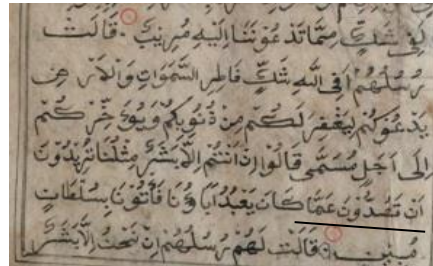 لفى شك مما تدعوننا اليه مريب قالت
رسلهم افى الله شك فاطر السموات والارض
يدعوكم ليغفر لكم من ذنوبكم ويؤخركم
الى اجل مسمى قالوا ان انتم الا بشر مثلنا تريدون
ان تصدونا عما كان يعبد اباؤنا فاتونا بسلطان
مبين قالت لهم رسلهم ان نحن الا بشر